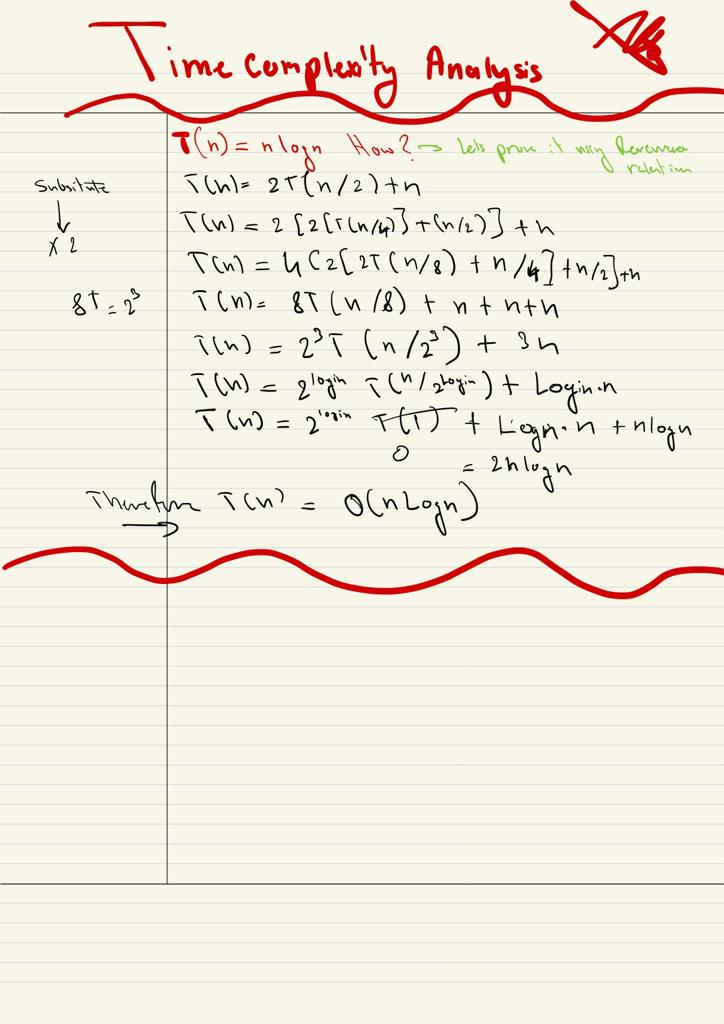 Time Complexity Analysis
T(n) = n logn How? → Lets prove it using
relation
Subsitute
↓
x 2
T(n) = 2T(n/2) + n
T(n) = 2 [2[T(n/4)] + (n/2)] + n
T(n) = 4 [2[2T(n/8) + n/4] + n/2] + n
8T = 2³
T(n) = 8T (n/8) + n + n + n
T(n) = 2³T (n/2³) + 3n
T(n) = 2^login T(n/2^login) + Login·n
T(n) = 2^login T(1) + Logn·n + nlogn
0
= 2nlogn
Therefore T(n) = O(n Logn)